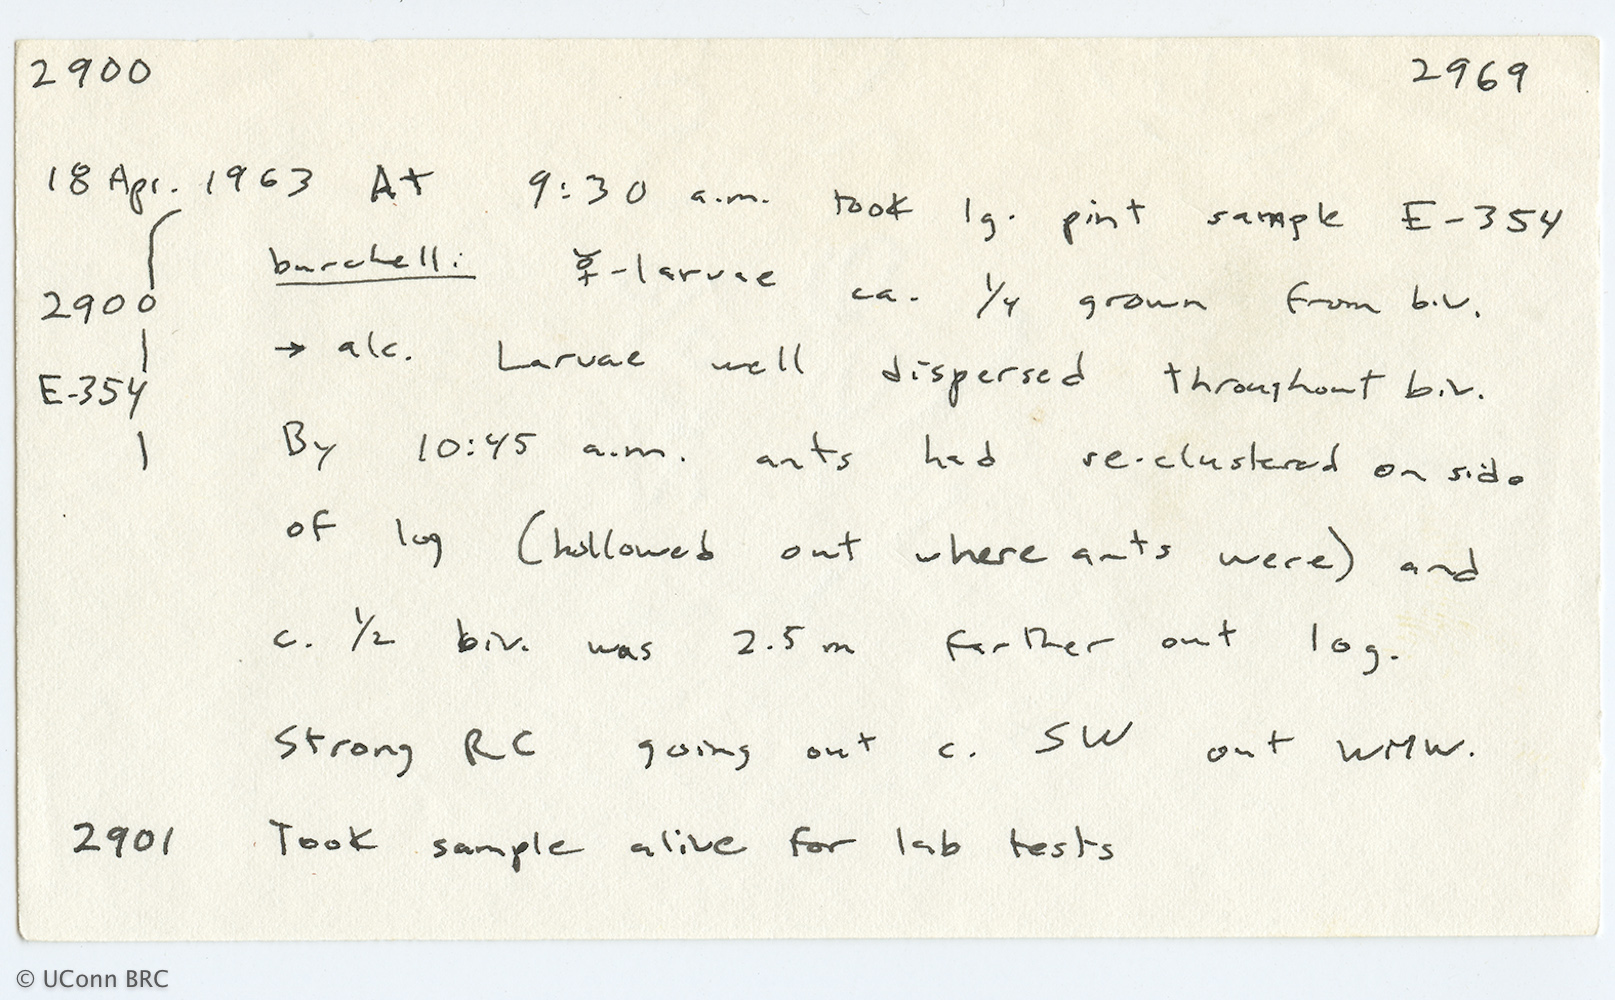 2900 2969
18 Apr. 1963 At 9:30 a.m. took lg. pint sample E-354
burchelli ☿-larvae ca. 1/4 grown from biv.
2900
→ alc. Larvae well dispersed throughout biv.
E-354
By 10:45 a.m. ants had re-clustered on side
of log (hollowed out where ants were) and
c. 1/2 biv. was 2.5 m farther out log.
Strong RC going out c. SW out WNW.
2901 Took sample alive for lab tests
© UConn BRC